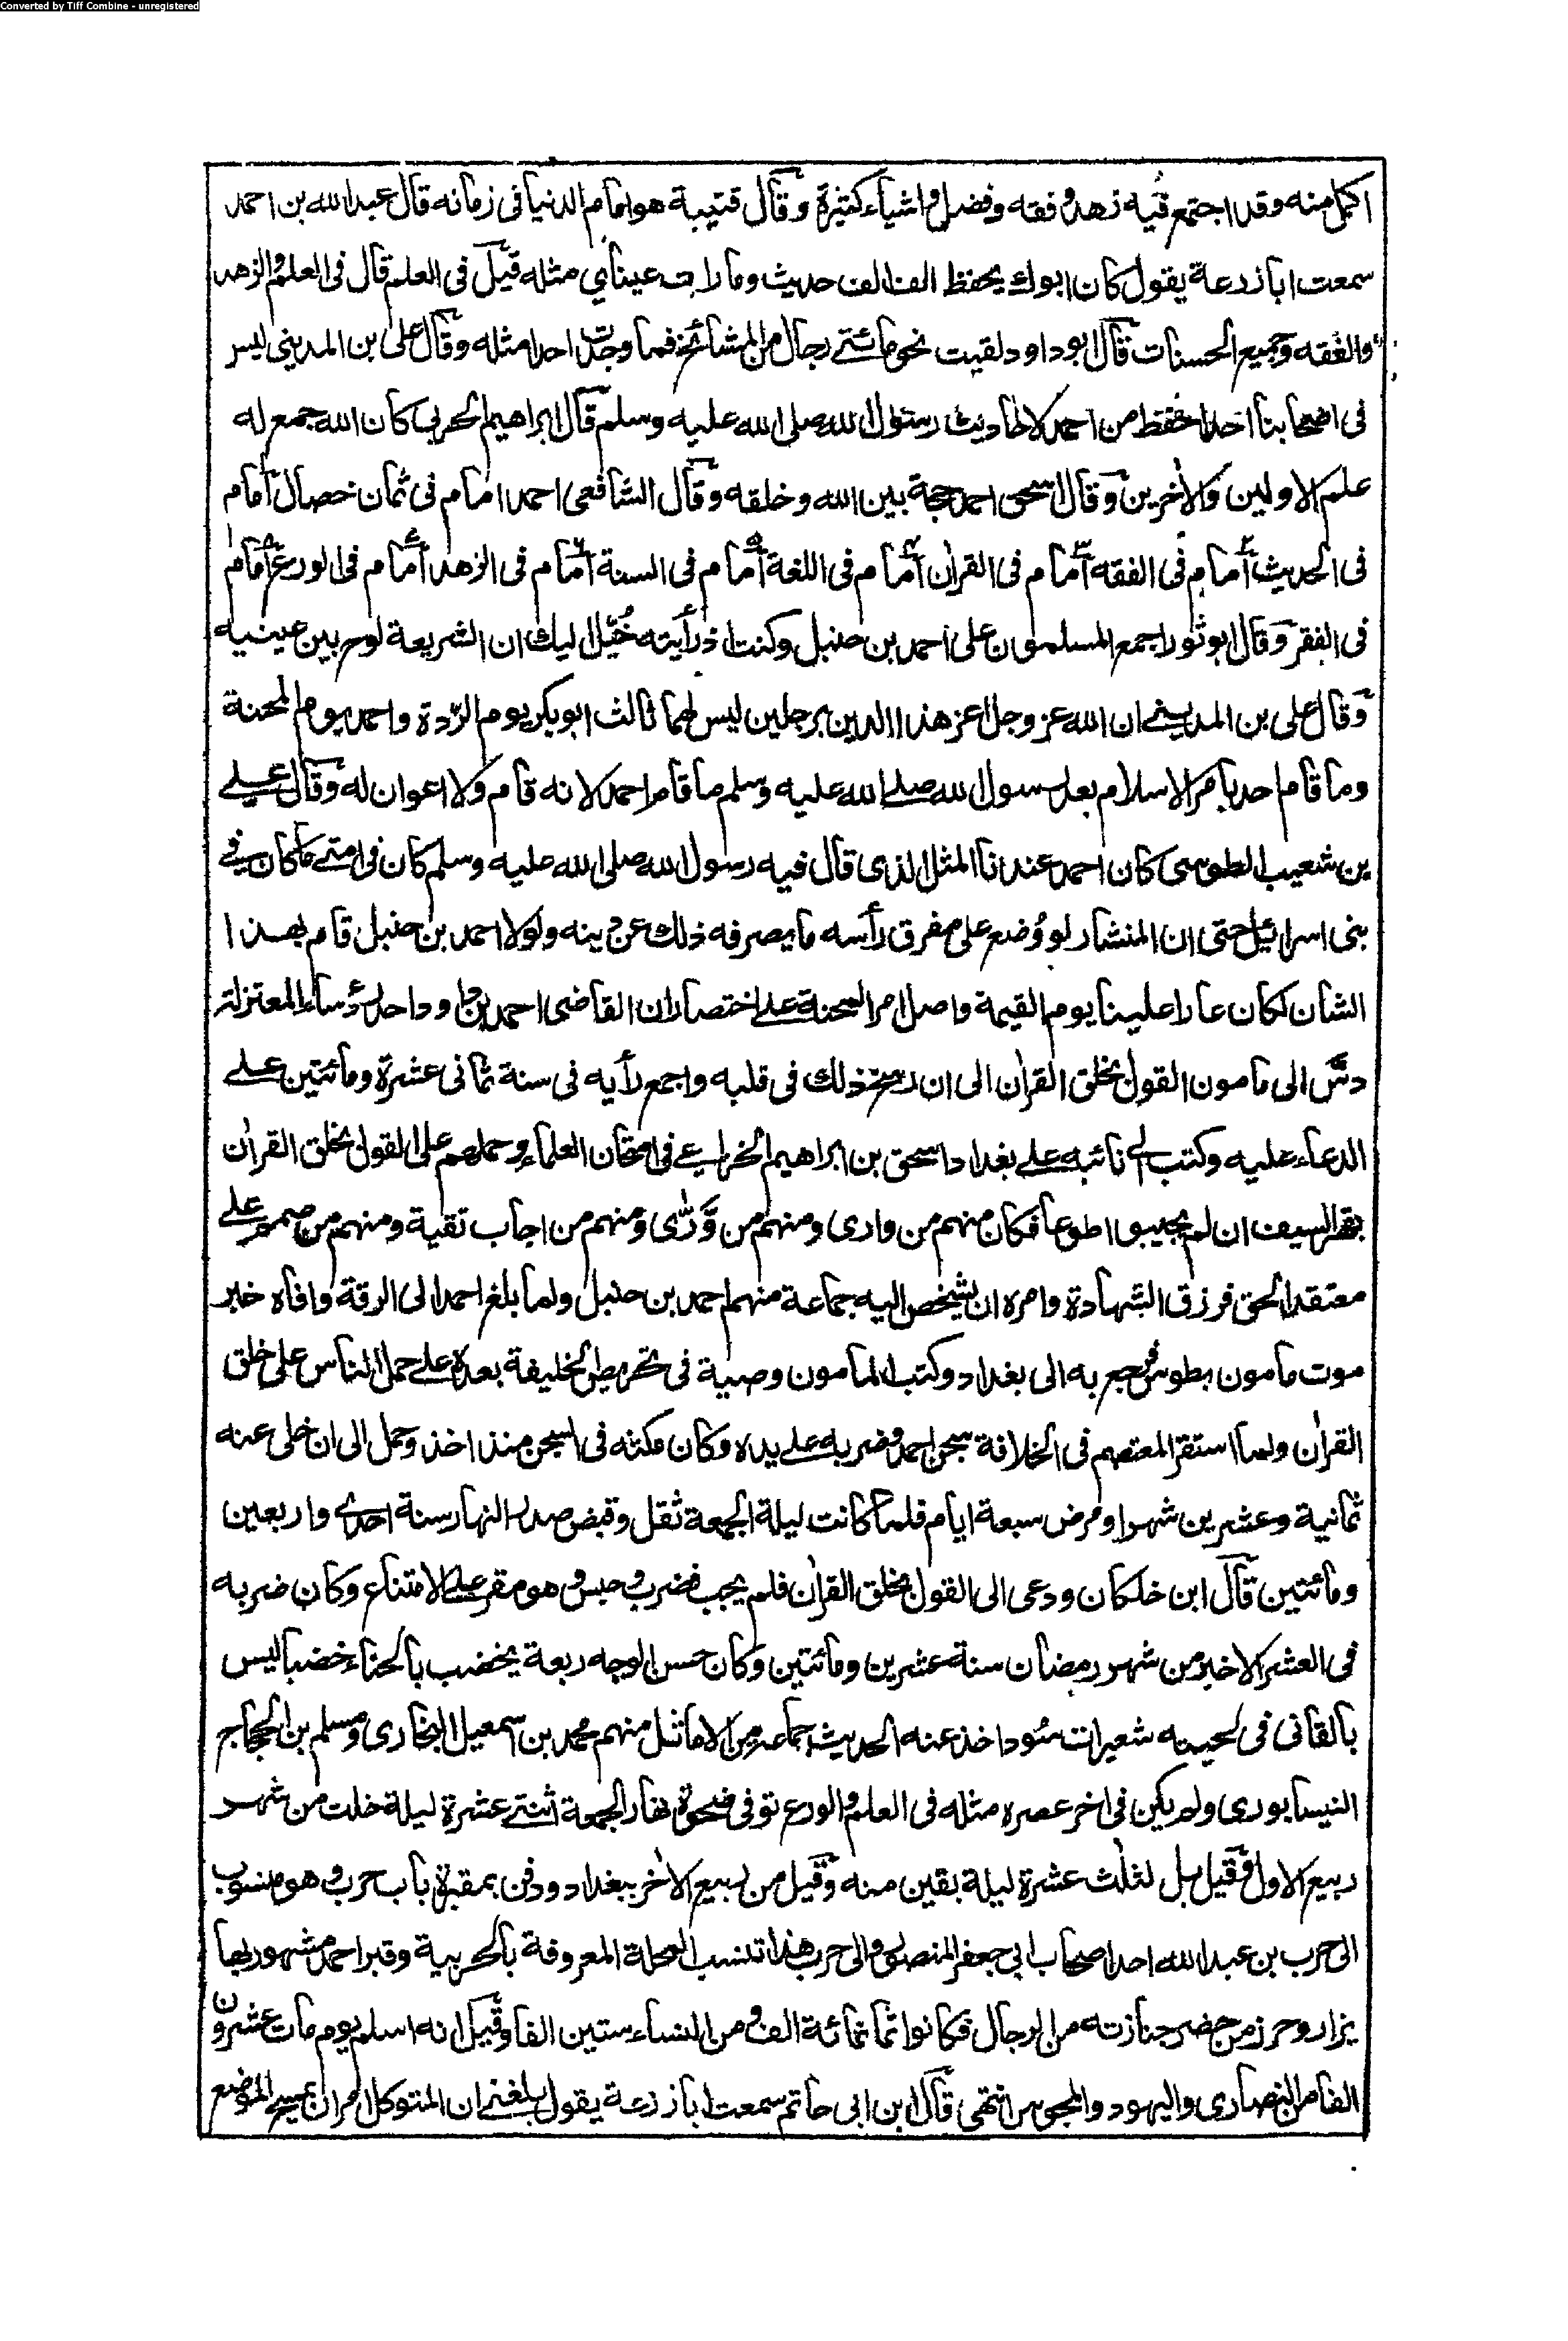 Converted by Tiff Combine - unregistered
اكمل منه وقد اجتمع فيه زهد وفقه وفضل واشياء كثيرة وقال قتيبة هو امام الدنيا فى زمانه قال عبد الله بن احمد
سمعت ابا زرعة يقول كان ابوك يحفظ الف الف حديث وما رات عيناي مثله قيل فى العلم قال فى العلم والزهد
والفقه وجميع الحسنات قال ابو داود لقيت نحو مائتے رجال من المشائخ فما وجدت احدا مثله وقال على بن المدينى ليس
فى اصحابنا احدا حفظ من احمد لاحاديث رسول الله صلى الله عليه وسلم قال ابراهيم الحربى كان الله جمع له
علم الاولين والاخرين وقال اسحق احمد حجة بين الله وخلقه وقال الشافعى احمد امام فى ثمان خصال امام
فى الحديث امام فى الفقه امام فى القرأن امام فى اللغة امام فى السنة امام فى الزهد امام فى الورع امام
فى الفقر وقال ابو ثور اجمع المسلمون على احمد بن حنبل وكنت اذ رأيته خُيّل اليك ان الشريعة لوح بين عينيه
وقال على بن المدينے ان الله عز وجل اعز هذا الدين برجلين ليس لهما ثالث ابو بكر يوم الردة واحمد يوم المحنة
وما قام احد بامر الاسلام بعد رسول الله صلے الله عليه وسلم ما قام احمد لانه قام ولا اعوان له وقال علے
بن شعيب الطوسى كان احمد عندنا المثل الذى قال فيه رسول الله صلى الله عليه وسلم كان فى امتے ما كان فے
بنى اسرائيل حتى ان المنشار لو وُضع على مفرق رأسه ما يصرفه ذلك عن دينه ولولا احمد بن حنبل قام بهذا
الشان لكان عارا علينا يوم القيمة واصل امر المحنة علے اختصار ان القاضى احمد بن داود احد رؤساء المعتزلة
دسّ الى مامون القول بخلق القرأن الى ان رسخ ذلك فى قلبه واجمع رأيه فى سنة ثمانى عشرة ومائتين علے
الدعاء عليه وكتب الے نائبه علے بغداد اسحق بن ابراهيم الخزاعے فى امتحان العلماء وحملهم على القول بخلق القرأن
السيف ان لم يجيبوا طوعا فكان منهم من وارى ومنهم من وَرّٰى ومنهم من اجاب تقية ومنهم من صمم علے
معتقد الحق فرزق الشهادة وامره ان يشخص اليه جماعة منهم احمد بن حنبل ولما بلغ احمد الى الرقة وافاه خبر
موت مامون بطوس فرجع به الى بغداد وكتب المامون وصية فى تحريض الخليفة بعده علے حمل الناس على خلق
القرأن ولما استقر المعتصم فى الخلافة سجن احمد وضربه علے يده وكان مكثه فى السجن منذ اخذ وحمل الى ان خلى عنه
ثمانية وعشرين شهرا ومرض سبعة ايام فلما كانت ليلة الجمعة ثقل وقبض صدر النهار سنة احدے واربعين
ومائتين قال ابن خلكان ودعى الى القول بخلق القرأن فلم يجب فضرب وحبس وهو مقر علے الامتناع وكان ضربه
فى العشر الاخير من شهر رمضان سنة عشرين ومائتين وكان حسن الوجه ربعة يخضب بالحناء خضبا ليس
بالقانى فى لحيته شعيرات سُود اخذ عنه الحديث جماعة من الاماثل منهم محمد بن اسمعيل البخارى ومسلم بن الحجاج
النيسابورى ولم يكن فى اخر عصره مثله فى العلم والورع توفى ضحوة نهار الجمعة اثنتے عشرة ليلة خلت من شهر
ربيع الاول وقيل بل لثلث عشرة ليلة بقين منه وقيل من ربيع الاخر ببغداد ودفن بمقبرة باب حرب وهو منسوب
الى حرب بن عبد الله احد اصحاب ابى جعفر المنصور والى حرب هذا تنسب المحلة المعروفة بالحربية وقبر احمد مشهور بها
يزار وحرز من حضر جنازته من الرجال فكانوا ثمانمائة الف ومن النساء ستين الفا وقيل انه اسلم يوم مات عشرون
الفا من النصارى واليهود والمجوس انتهى قال ابن ابى حاتم سمعت ابا زرعة يقول بلغنے ان المتوكل امر ان يمسح الموضع